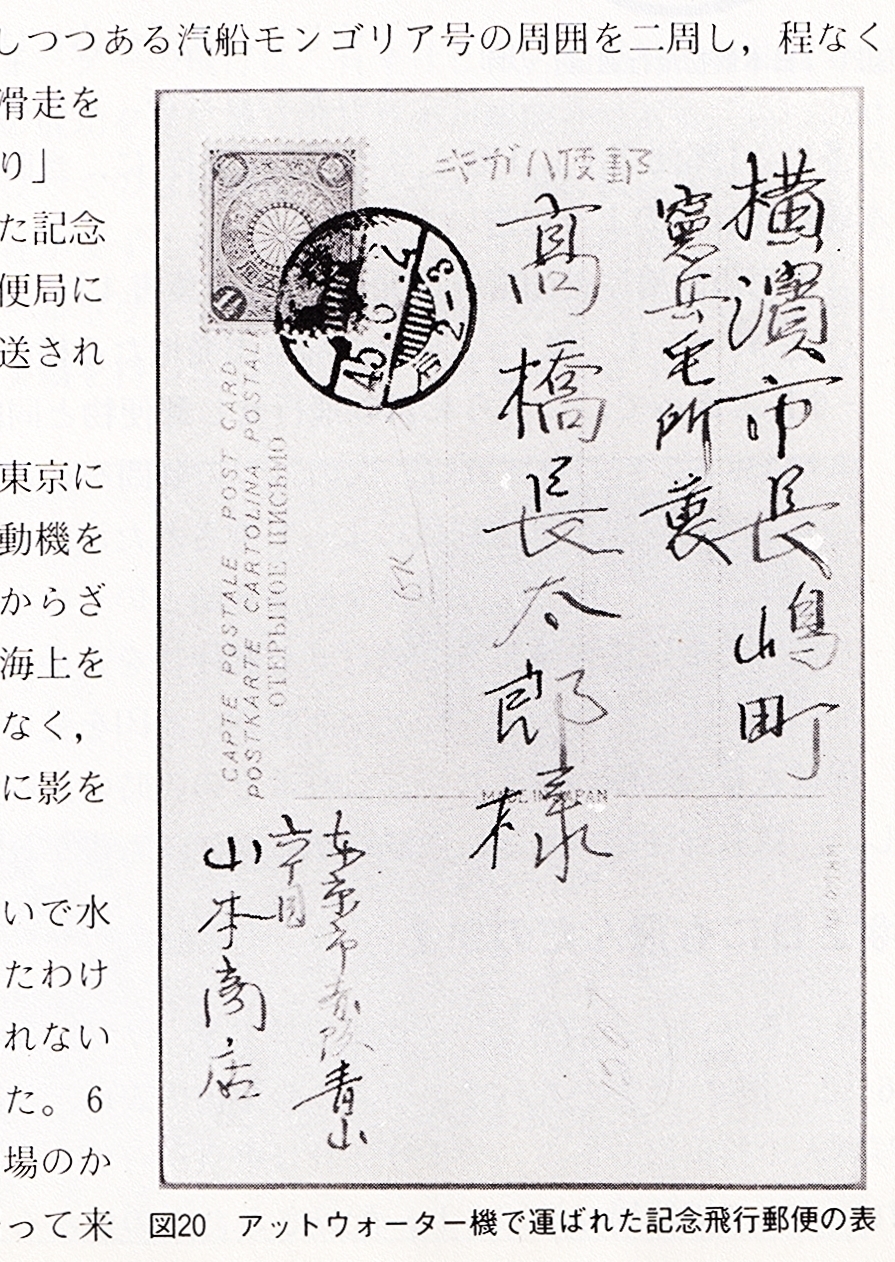 しつつある汽船モンゴリア号の周囲を二周し，程なく
滑走を
り」
た記念
便局に
送され
東京に
動機を
からざ
海上を
なく，
に影を
いで水
たわけ
れない
た。6
場のか
って来
キガハ便郵
横濱市長嶋町
憲兵屯所裏
高橋長太郎様
45.6.2
2-3
CARTE POSTALE POST CARD
POSTKARTE CARTOLINA POSTALE
ОТЕРЫТОЕ ПИСЬМО
MADE IN JAPAN
东京市赤阪青山
六丁目
山本商店
図20　アットウォーター機で運ばれた記念飛行郵便の表